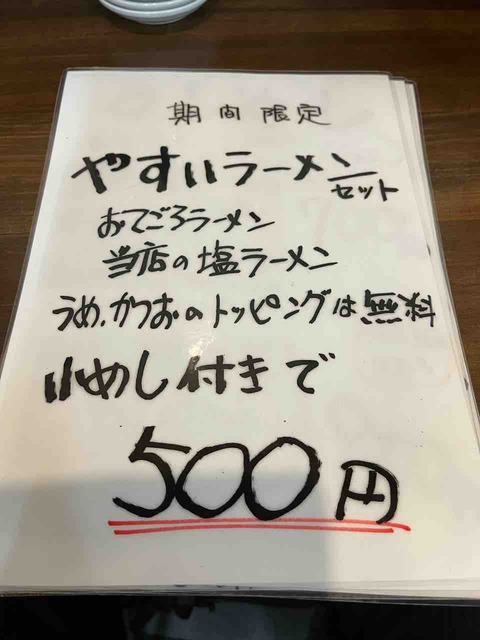 期間限定
やすいラーメン
セット
おてごろラーメン
当店の塩ラーメン
うめ、かつおのトッピングは無料
小めし付きで
500円